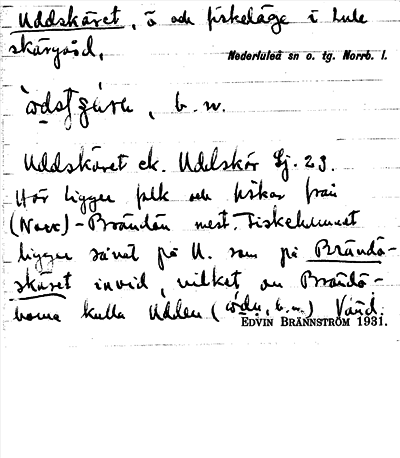 Uddskäret, ö och fiskeläge i Lule
skärgård.
Nederluleå sn o. tg. Norrb. l.
b. m.
Uddskäret ek. Uddskär Lj. 23.
Här ligger folk och fiskar från
(Norr)-Brändön mest. Fiskehamnet
ligger såväl på U. som på Brändö-
skäret invid, vilket av Brändö-
borna kalla Udden ( b. m.)
EDVIN BRÄNNSTRÖM 1931.